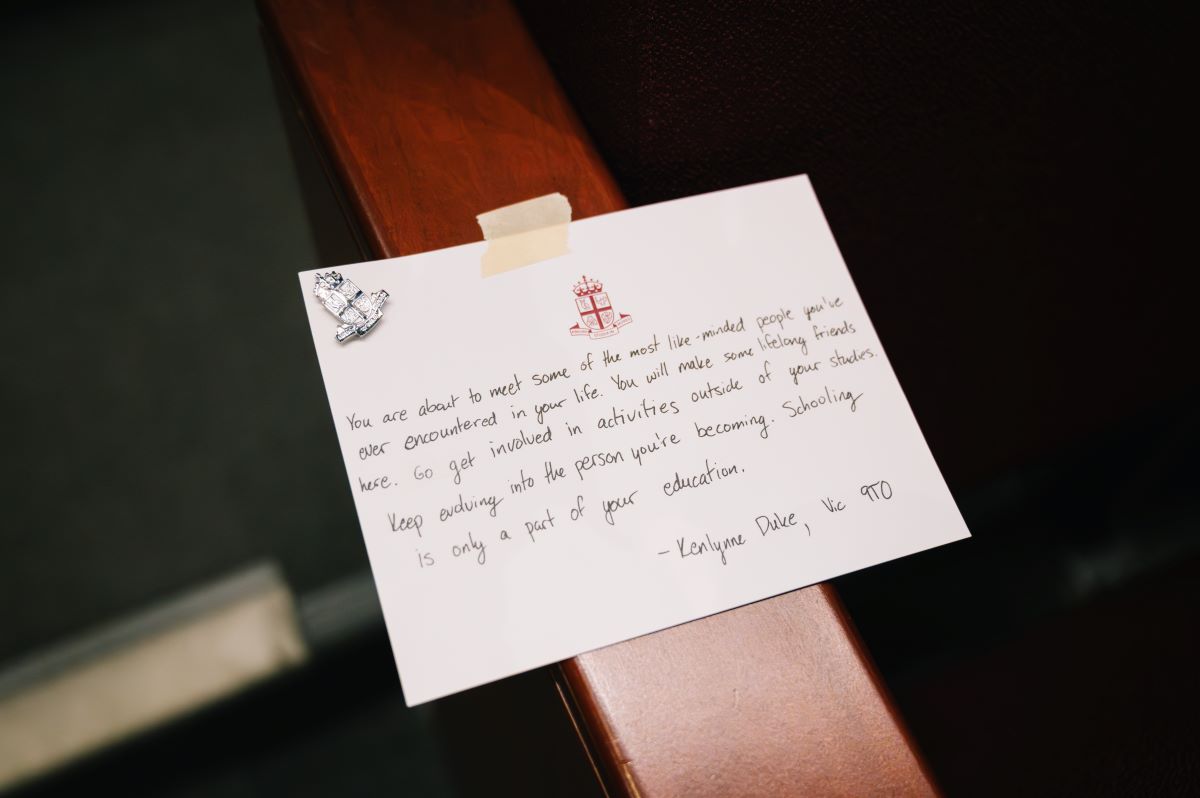 You are about to meet some of the most like-minded people you've
ever encountered in your life. You will make some lifelong friends
here. Go get involved in activities outside of your studies.
Keep evolving into the person you're becoming. Schooling
is only a part of your education.
- Kenlynne Duke, Vic 9T0